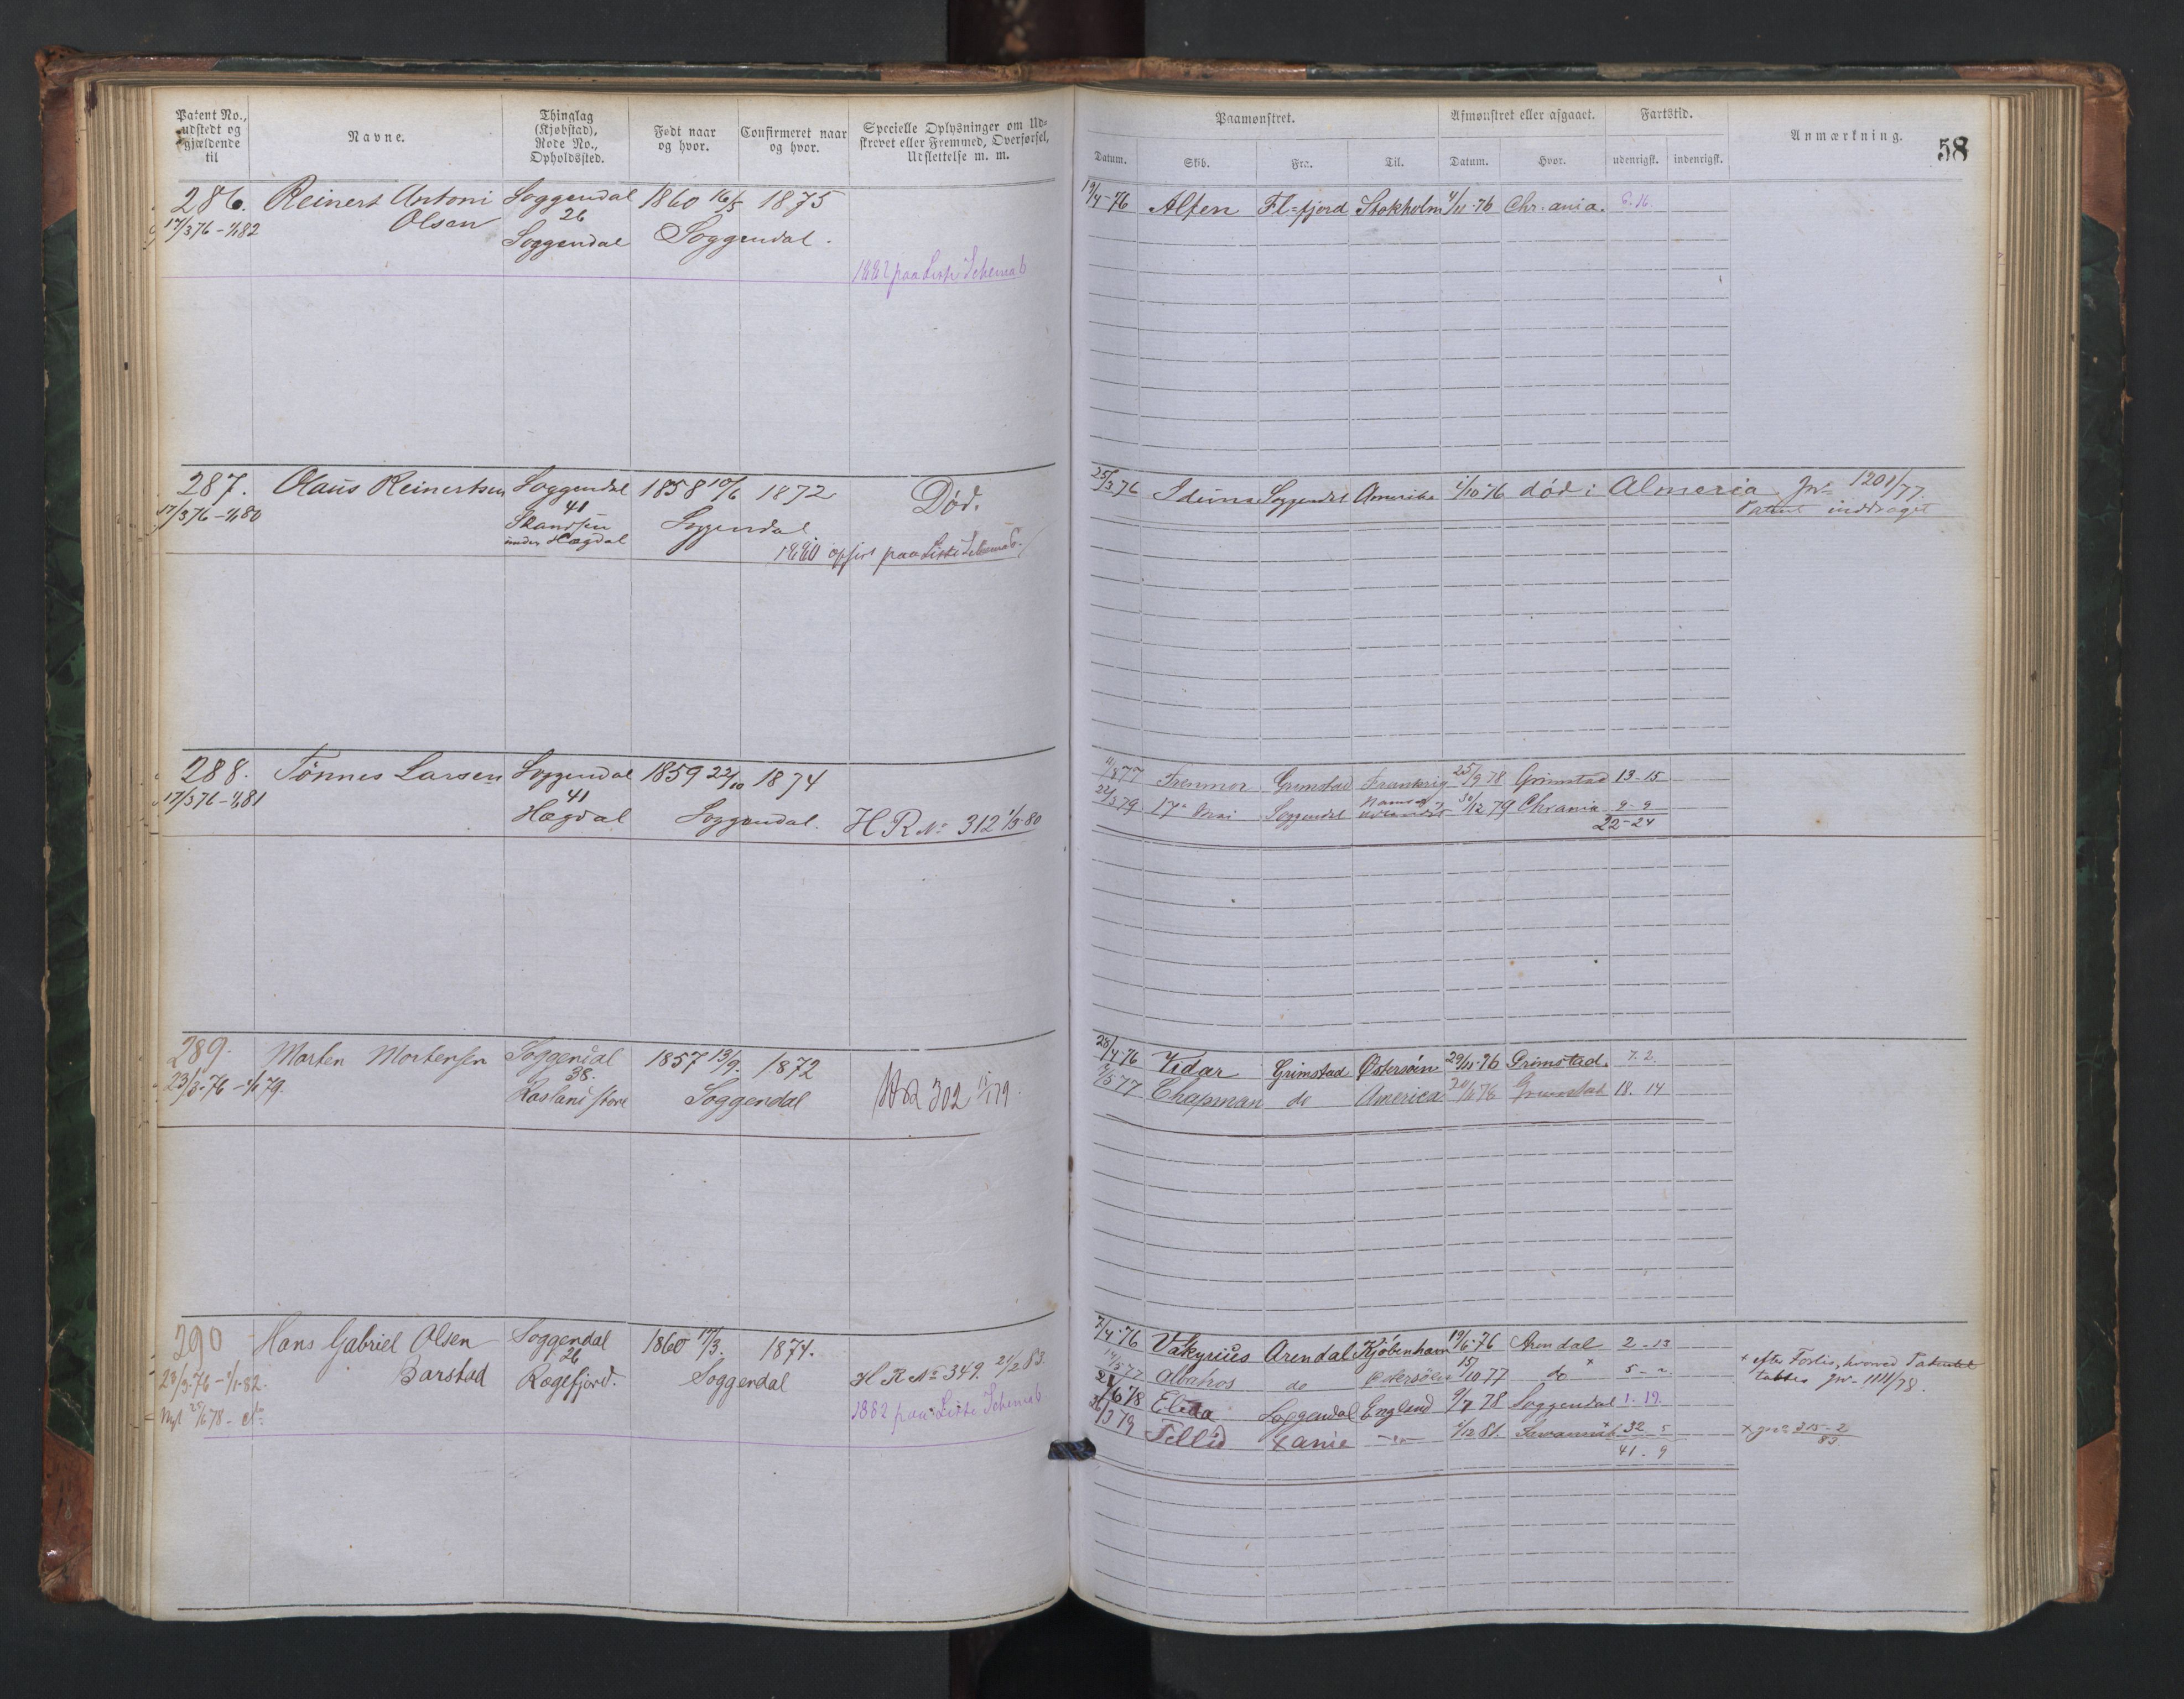 Patent No., udstedt og gjældende til
Navne.
Thinglag (Kjøbstad), Rode No., Opholdssted.
Født naar og hvor.
Confirmeret naar og hvor.
Specielle Oplysninger om Udskrevet eller Fremmed, Overførsel, Udslettelse m. m.
286. Reinert Antoni Soggendal 1860 16/5 1875
17/3 76 - 1/1 82 Olsen 26
Soggendal Soggendal.
1882 paa Liste Schema b
287. Olaus Reinertsen Soggendal 1858 10/6 1872 Död.
17/3 76 - 1/1 80 41
Strandsen Soggendal
under Hægdal
1880 opført paa Liste Schema b.
288. Tönnes Larsen Soggendal 1859 22/10 1874
17/3 76 - 1/1 81 41
Hægdal Soggendal. H R No 312 1/3 80
289. Morten Mortensen Soggendal 1857 13/9. 1872
23/3-76 - 1/1 79. 38.
store Soggendal 302
290 Hans Gabriel Olsen Soggendal 1860 17/3. 1874.
28/3-76 - 1/1-82. Barstad 26
Rægefjord. Soggendal H R No 349. 21/2 83.
1882 paa Liste Schema b
58
Paamønstret.
Afmønstret eller afgaaet.
Fartstid.
Anmærkning.
Datum. Skib. Fra. Til. Datum. Hvor. udenrigsk. indenrigsk.
19/4-76 Alfen Fl=fjord Stokholm 4/11-76 Chr.ania. 6.16.
25/3 76 Iduna Soggendal Amerika 1/10-76 död i Almeria Jr= 1201/77.
Patent inddraget
11/8 77 Grimstad Frankrig 25/9 78 Grimstad 13-15
22/3 79 17de Mai Soggendal 30/12 79 Chrania 9-9
22-24
28/4-76 Vidar Grimstad Østersøin 29/11-76 Grimstad. 7.2.
11/5 77 Chapman do America Grimstad 18.14
7/4-76 Valkyrius Arendal Kjøbenhavn 19/6-76 Arendal 2-13
14/5 77 Albatros do Østersöen 15/10-77 do x 5-"
x efter Forlis, hvorved Patentet
tabtes Jr- 1111/78.
6 78 Elida Soggendal England 9/7 78 Soggendal 1.19.
3 79 x anie -"- 1/12 81. x 32 5
x Jr= 315-2/83
41.9